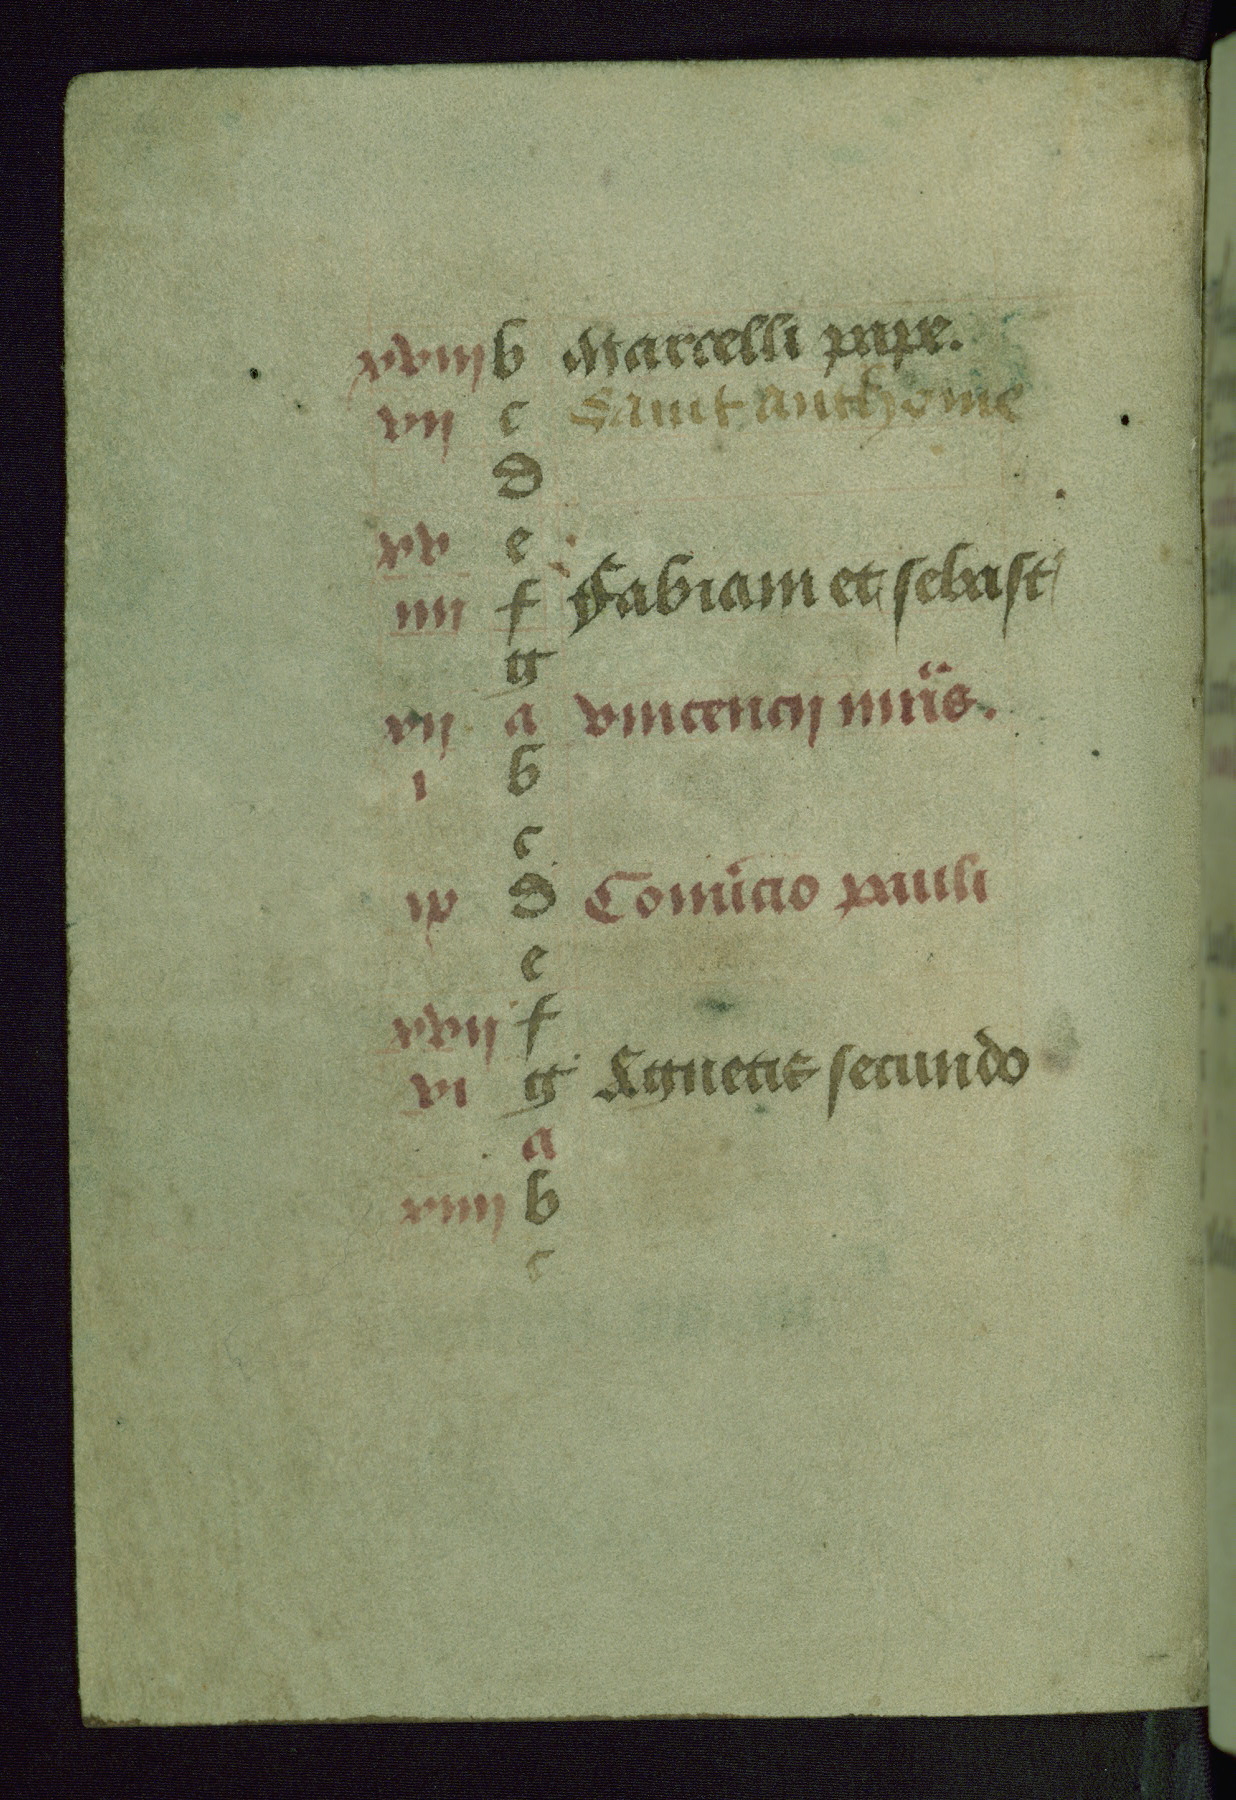 xviii b Marcelli pape.
vii c Sant anthonie
d
xv e
iiii f Fabiani et sebast
g
xii a vincencij mr̄is.
i b
c
ix d Conūcio pauli
e
xvii f
vi g Agnetis secundo
a
xiiii b
c